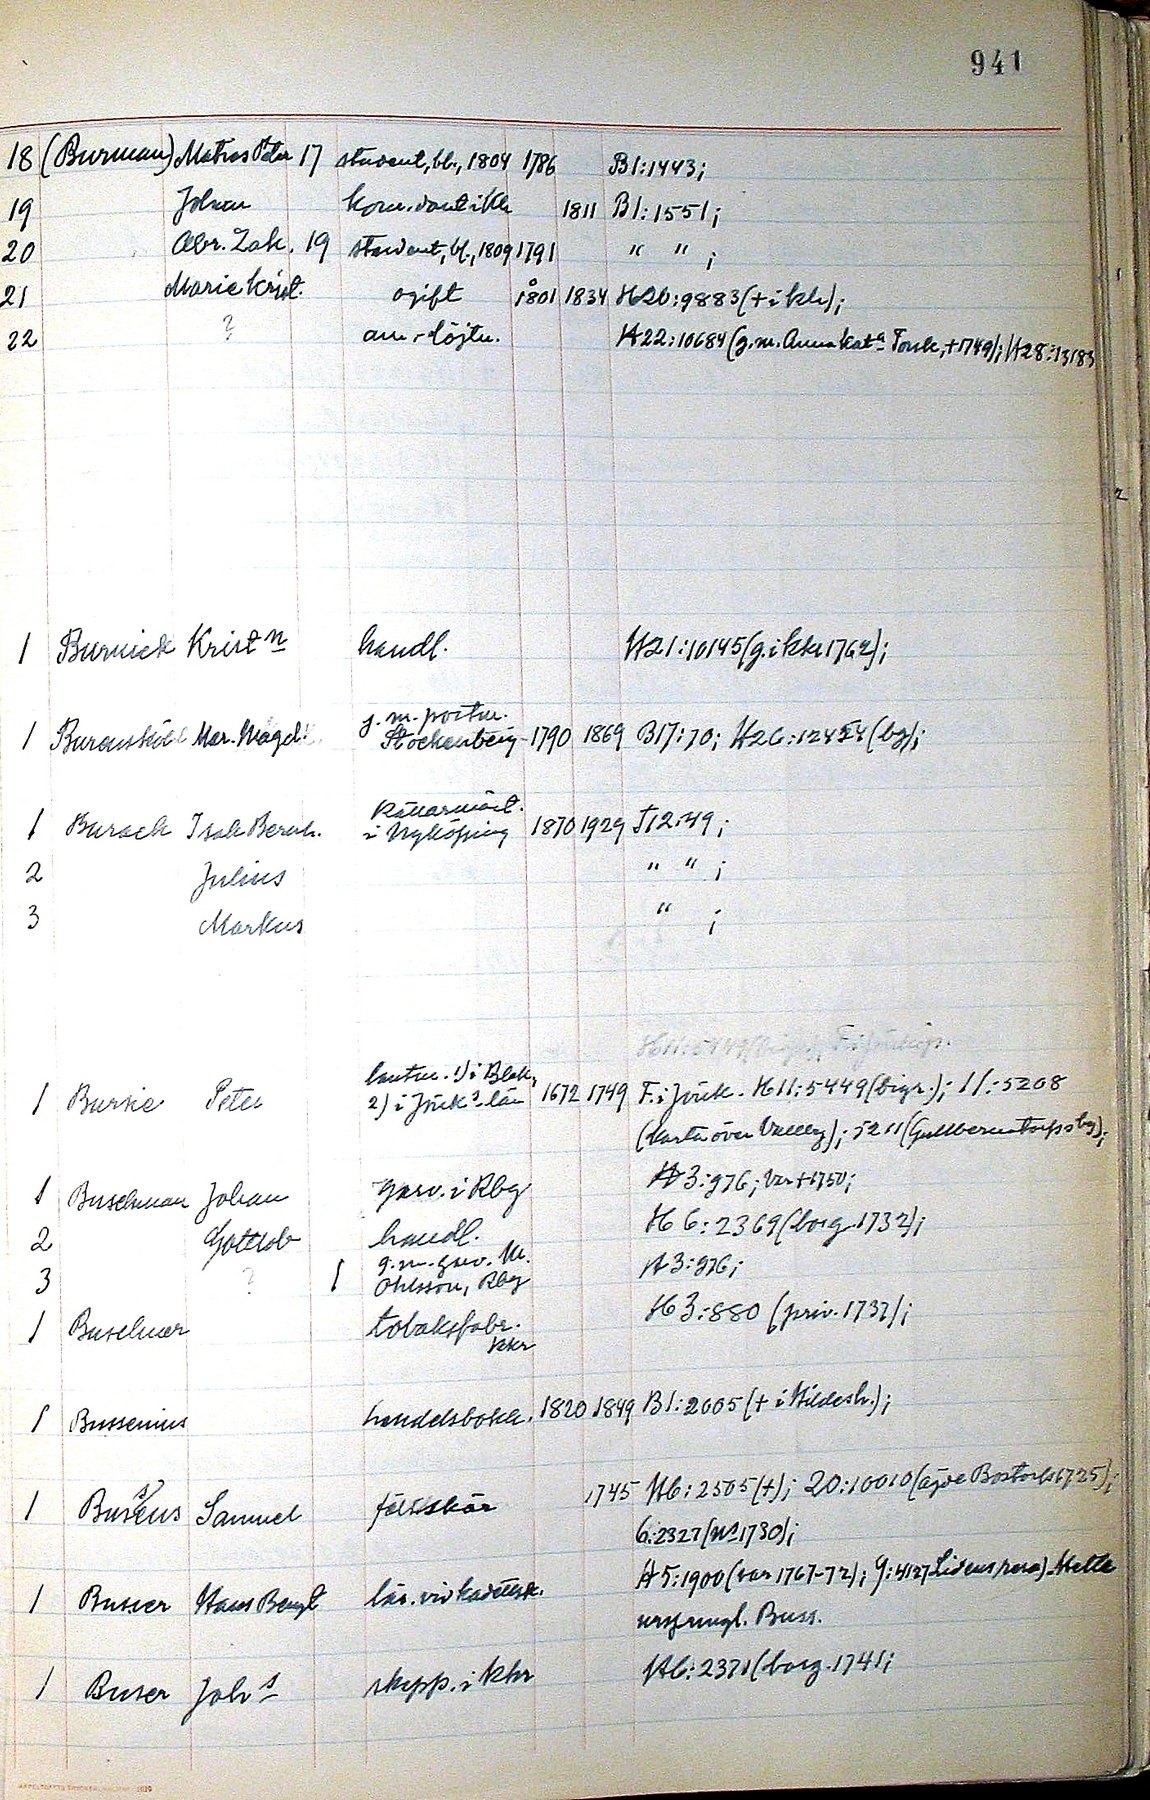 941
18 (Burman) Matias Peter 17 student, bl., 1804 1786 B1:1443;
19 Johan 1811 B1:1551;
20 Abr. Zak. 19 student, bl., 1809 1791 " " ;
21 Marie Krist. ogift 1801 1834 H26:9883 (+ i kkr);
22 ? arr. löjtn. H22:10684 (g.m. Anna Kat:a +1749); H28:13183
1 Burnick Krist:n handl. H21:10145 (g. i kkr 1762);
g. m. postm.
1 Mar. Magd. Stockenberg 1790 1869 B17:70; H26:12454 (bg);
Källarmäst.
1 Burack Isak Bernh. i Nyköping 1870 1929 J12:49;
2 Julius " " ;
3 Markus " ;
lantm. 1) i Blek,
1 Peter 2) i Jönk:s län 1672 1749 F. i Jönk. H11:5449 (bigr.); 11:5208
(karta över ); 5211
1 Buschman Johan garv. i Kbg H3:976; var +1750;
2 Gottlob handl. H6:2369 (borg. 1732);
g. m. garv. M.
3 ? 1 Ohlsson, Kbg H3:976;
1 tobaksfabr. H3:880 (priv. 1737);
kkr
1 Bussenius handelsbokh. 1820 1849 B1:2005 (+ i Hildesh.);
1 Samuel fältskär 1745 H6:2505 (+); 20:10010 (ägde Bostorp 1725);
6:2327 (1730);
1 Busser Hans Bengt lär. vid kadettsk. H5:1900 (var 1767-72); 9:4127
ursprungl. Buss.
1 Buser Joh:s skepp. i kkr H6:2371 (borg. 1741;